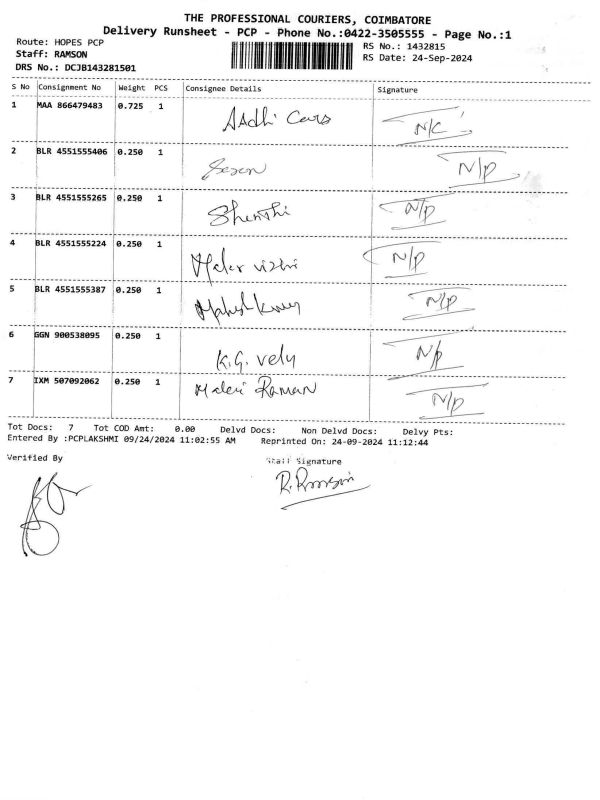 THE PROFESSIONAL COURIERS, COIMBATORE
Delivery Runsheet - PCP - Phone No.:0422-3505555 - Page No.:1
Route: HOPES PCP RS No.: 1432815
Staff: RAMSON RS Date: 24-Sep-2024
DRS No.: DCJB143281501
S No Consignment No Weight PCS Consignee Details Signature
1 MAA 866479483 0.725 1 AAdhi Cars N/C
2 BLR 4551555406 0.250 1 N/P
3 BLR 4551555265 0.250 1 Shenthi N/P
4 BLR 4551555224 0.250 1 Malar vizhi N/P
5 BLR 4551555387 0.250 1 N/P
6 GGN 900538095 0.250 1 K.G. vely N/P
7 IXM 507092062 0.250 1 Raman N/P
Tot Docs: 7 Tot COD Amt: 0.00 Delvd Docs: Non Delvd Docs: Delvy Pts:
Entered By :PCPLAKSHMI 09/24/2024 11:02:55 AM Reprinted On: 24-09-2024 11:12:44
Verified By Staff Signature